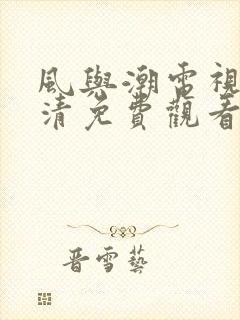 風與潮電視
清免費觀看
晋雪藝